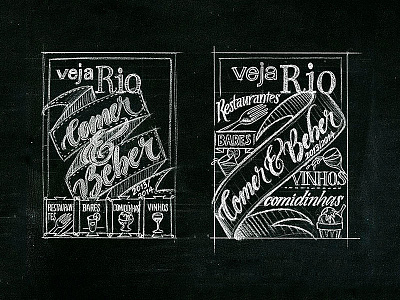 veja Rio
Comer
&
Beber
2013/2014
RESTAURAN
TES
BARES
COMIDINHAS
VINHOS
veja Rio
Restaurantes
BARES
Comer & Beber
2013/2014
VINHOS
comidinhas